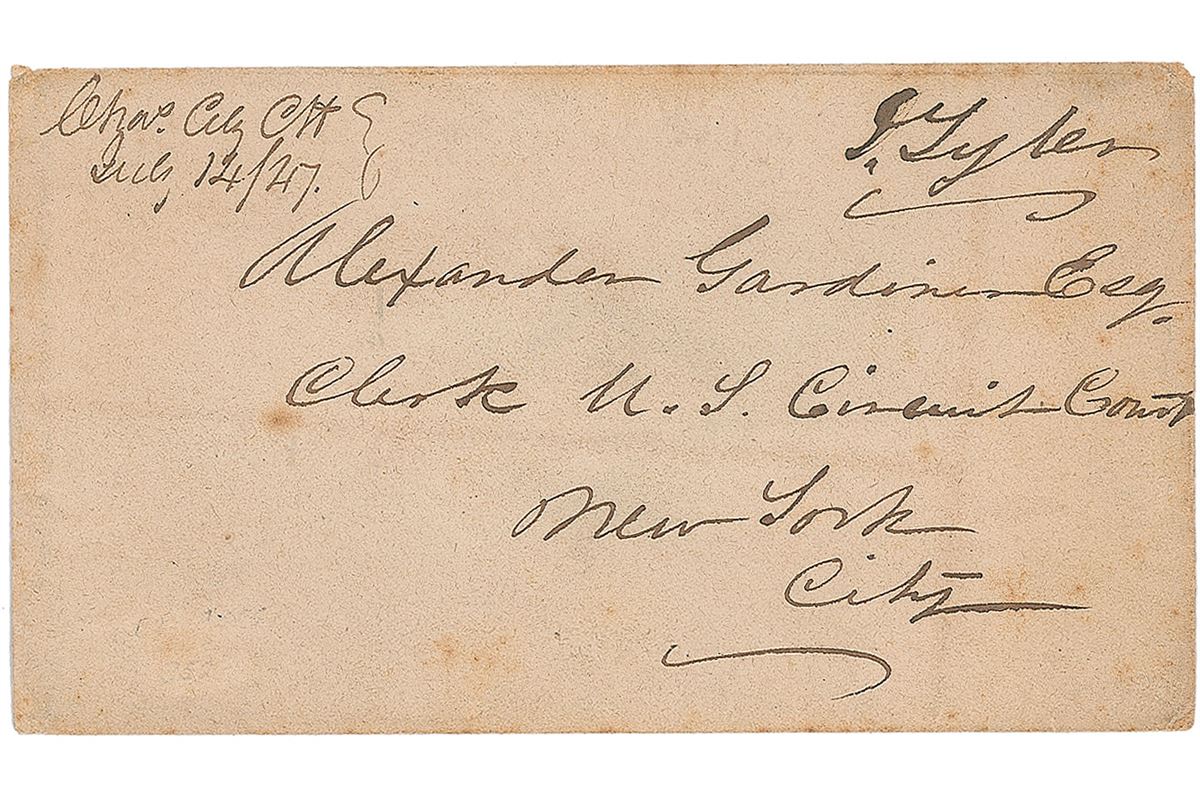 Chas. City CH
July 14/47.
J. Tyler
Alexander Gardiner Esq.
Clerk U. S. Circuit Court
New York
City